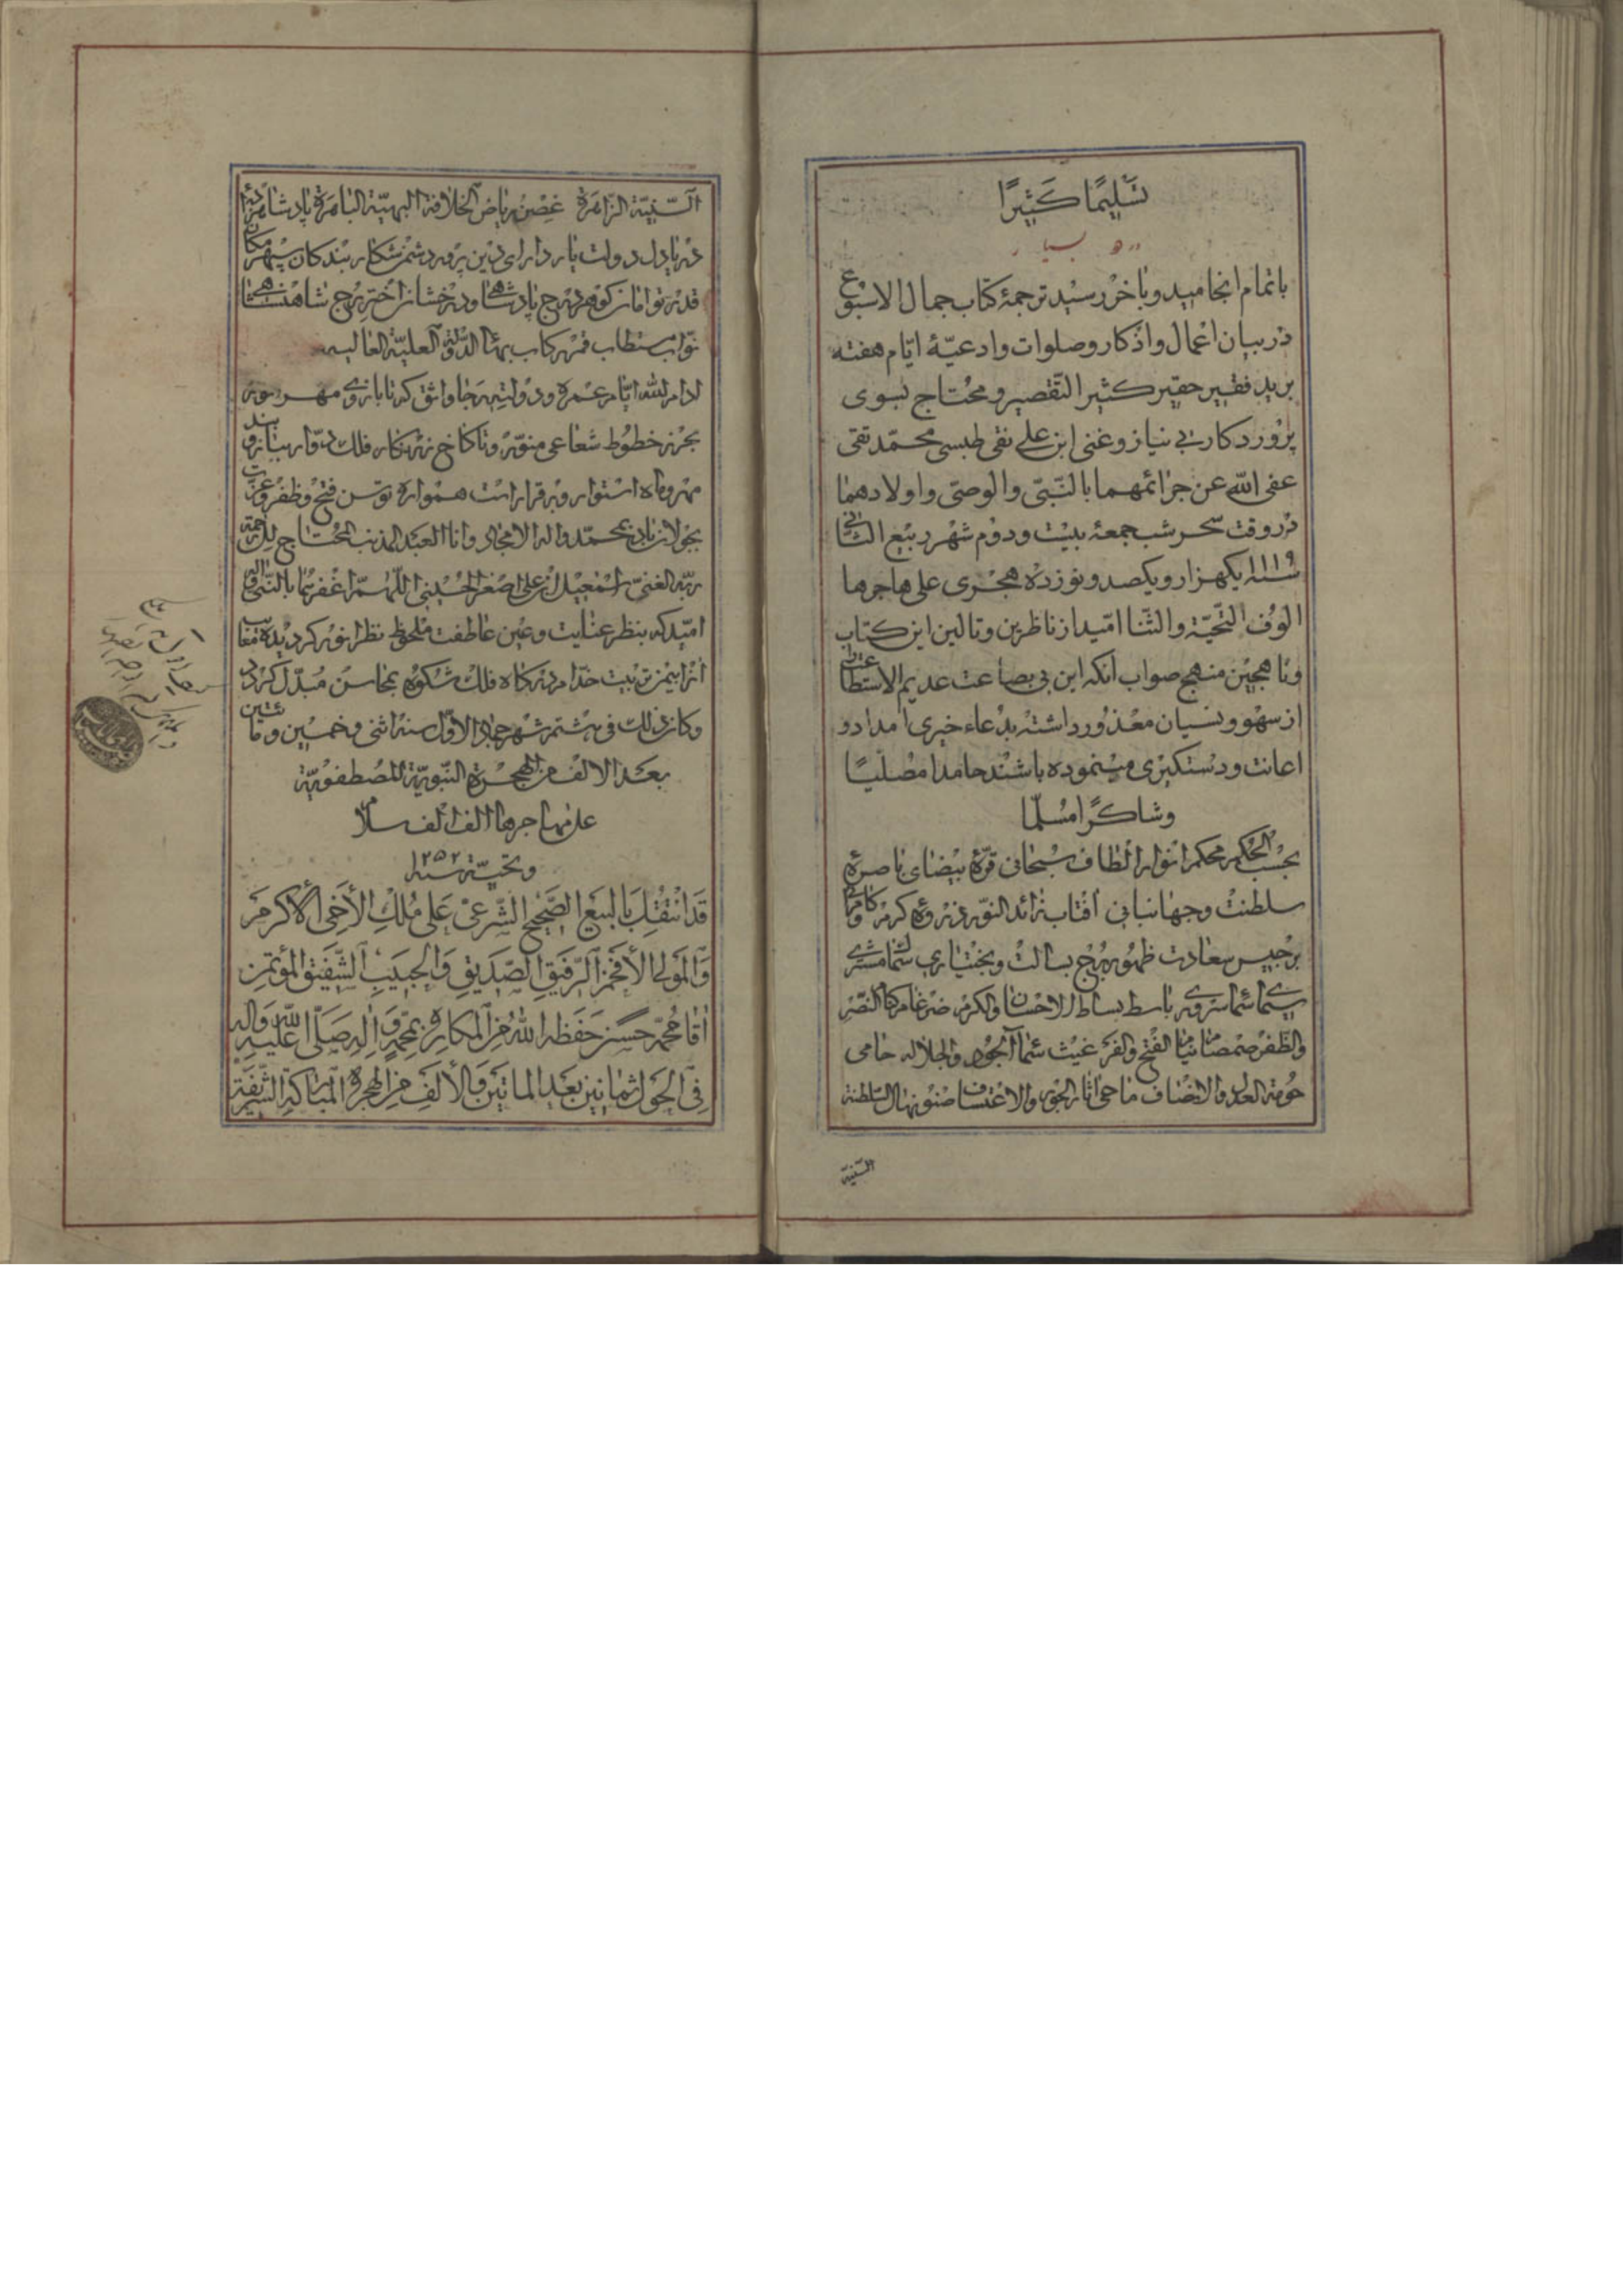 تسلیمًا كَثیرًا
باتمام انجامید و باخر رسید ترجمهٔ کتاب جمال الاسبوع
در بیان اعمال و اذکار و صلوات و ادعیهٔ ایّام هفته
برید فقیر حقیر کثیر التّقصیر و محتاج بسوی
پروردکار بی نیاز و غنی ابن علی نقی طبسی محمّد تقی
عفی اللّه عن جرائمهما بالنّبیّ والوصیّ و اولادهما
در وقت سحر شب جمعهٔ بیست و دوم شهر ربیع الثانی
سنه ۱۱۱۹ یکهزار و یکصد و نوزده هجری علی هاجرها
الوف التّحیّة والثّنا امّید از ناظرین و تالین این کتاب
و ناهجین منهج صواب آنکه این بی بضاعت عدیم الاستطاعت را
از سهو و نسیان معذور داشته بدعاء خیری امداد و
اعانت و دستکیری مینموده باشند حامدا مصلّیًا
و شاکرًا مسلّمًا
بحسب الحکم محکم انوار الطاف سبحانی قرّهٔ بیضای ناصرهٔ
سلطنت و جهانبانی افتاب زائد النّور ذروهٔ کرم کامرا
برجیس سعادت ظهور برج بسالت و بختیاری سما مشتری
سیما سما سروری باسط بساط الاحسان والکرم ضرغام کنا النّصر
والظّفر صمصام نیام الفتح والفر غیث سماء الجود والجلاله حامی
حومة العدل والانصاف ماحی اثار الجور والاعتساف صنو نهال السّلطنة
السّنیّه
السّنیّة الزّاهرة غصن ریاض الخلافة البهیّة الباهرة پادشاهزاده
دریادل دولت یار دارای دین پرور دشمن شکار بندکان سپهر مکان
قدر توامان کوهر درج پادشاهی و درخشان اختر برج شاهنشاهی
نوّاب مستطاب قمر رکاب بهاء الدّولة العلیّة العالیه
ادام اللّه ایّام عمره و دولته رجا واثق که تا بازوی مهر منور
بحرز خطوط شعاعی منوّر و تا کاخ زرنکار فلک دوّار ببازو بند
مهر و ماه استوار و برقرار است همواره توسن فتح و ظفر و عزت
بجولان باد بمحمّد و اله الامجاد و انا العبد المذنب المحتاج الی رحمة
ربّه الغنیّ اسمعیل ابن علی اصغر الحسینی اللّهمّ اغفر لهما بالنّبیّ و اله
امیّد که بنظر عنایت و عین عاطفت ملحوظ نظر انور کردیده معایب
انرا بیمن تربیت خدّام درکاه فلک شکوه بمحاسن مبدّل کردد
و کان ذلک فی هشتم شهر جماد الاوّل سنه اثنی و خمسین و مأتین
بعد الالف من الهجرة النّبویّة المصطفویّة
علی مهاجرها الف الف سلام
و تحیّة سنه ۱۲۵۲
قَد انْتَقَلَ بالبیع الصّحیح الشّرعیّ علی ملک الأخی الأکرم
والمولی الأفخم الرّفیق الصّدیق والحبیب الشّفیق المؤتمن
اقا محمّد حسن حفظه اللّه من المکاره بمحمّد و اله صلّی اللّه علیه و اله
فی الحول ثمانین بعد الماتین والألف من الهجرة المبارکة الشّریفة